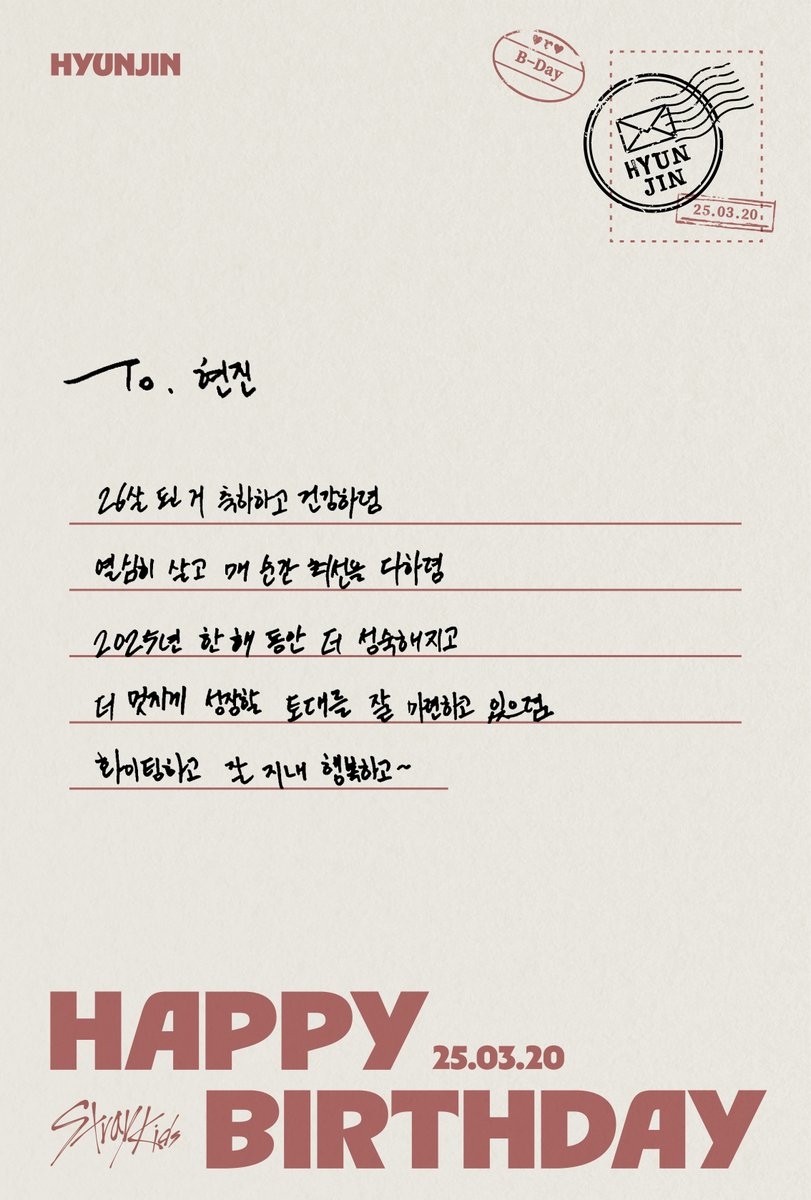 HYUNJIN
B-Day
HYUN
JIN
25.03.20
To. 현진
26살 된 거 축하하고 건강하렴
열심히 살고 매 순간 최선을 다하렴
2025년 한 해 동안 더 성숙해지고
더 멋지게 성장할 토대를 잘 마련하고 있으렴
화이팅하고 잘 지내 행복하고~
HAPPY
25.03.20
Stray Kids
BIRTHDAY